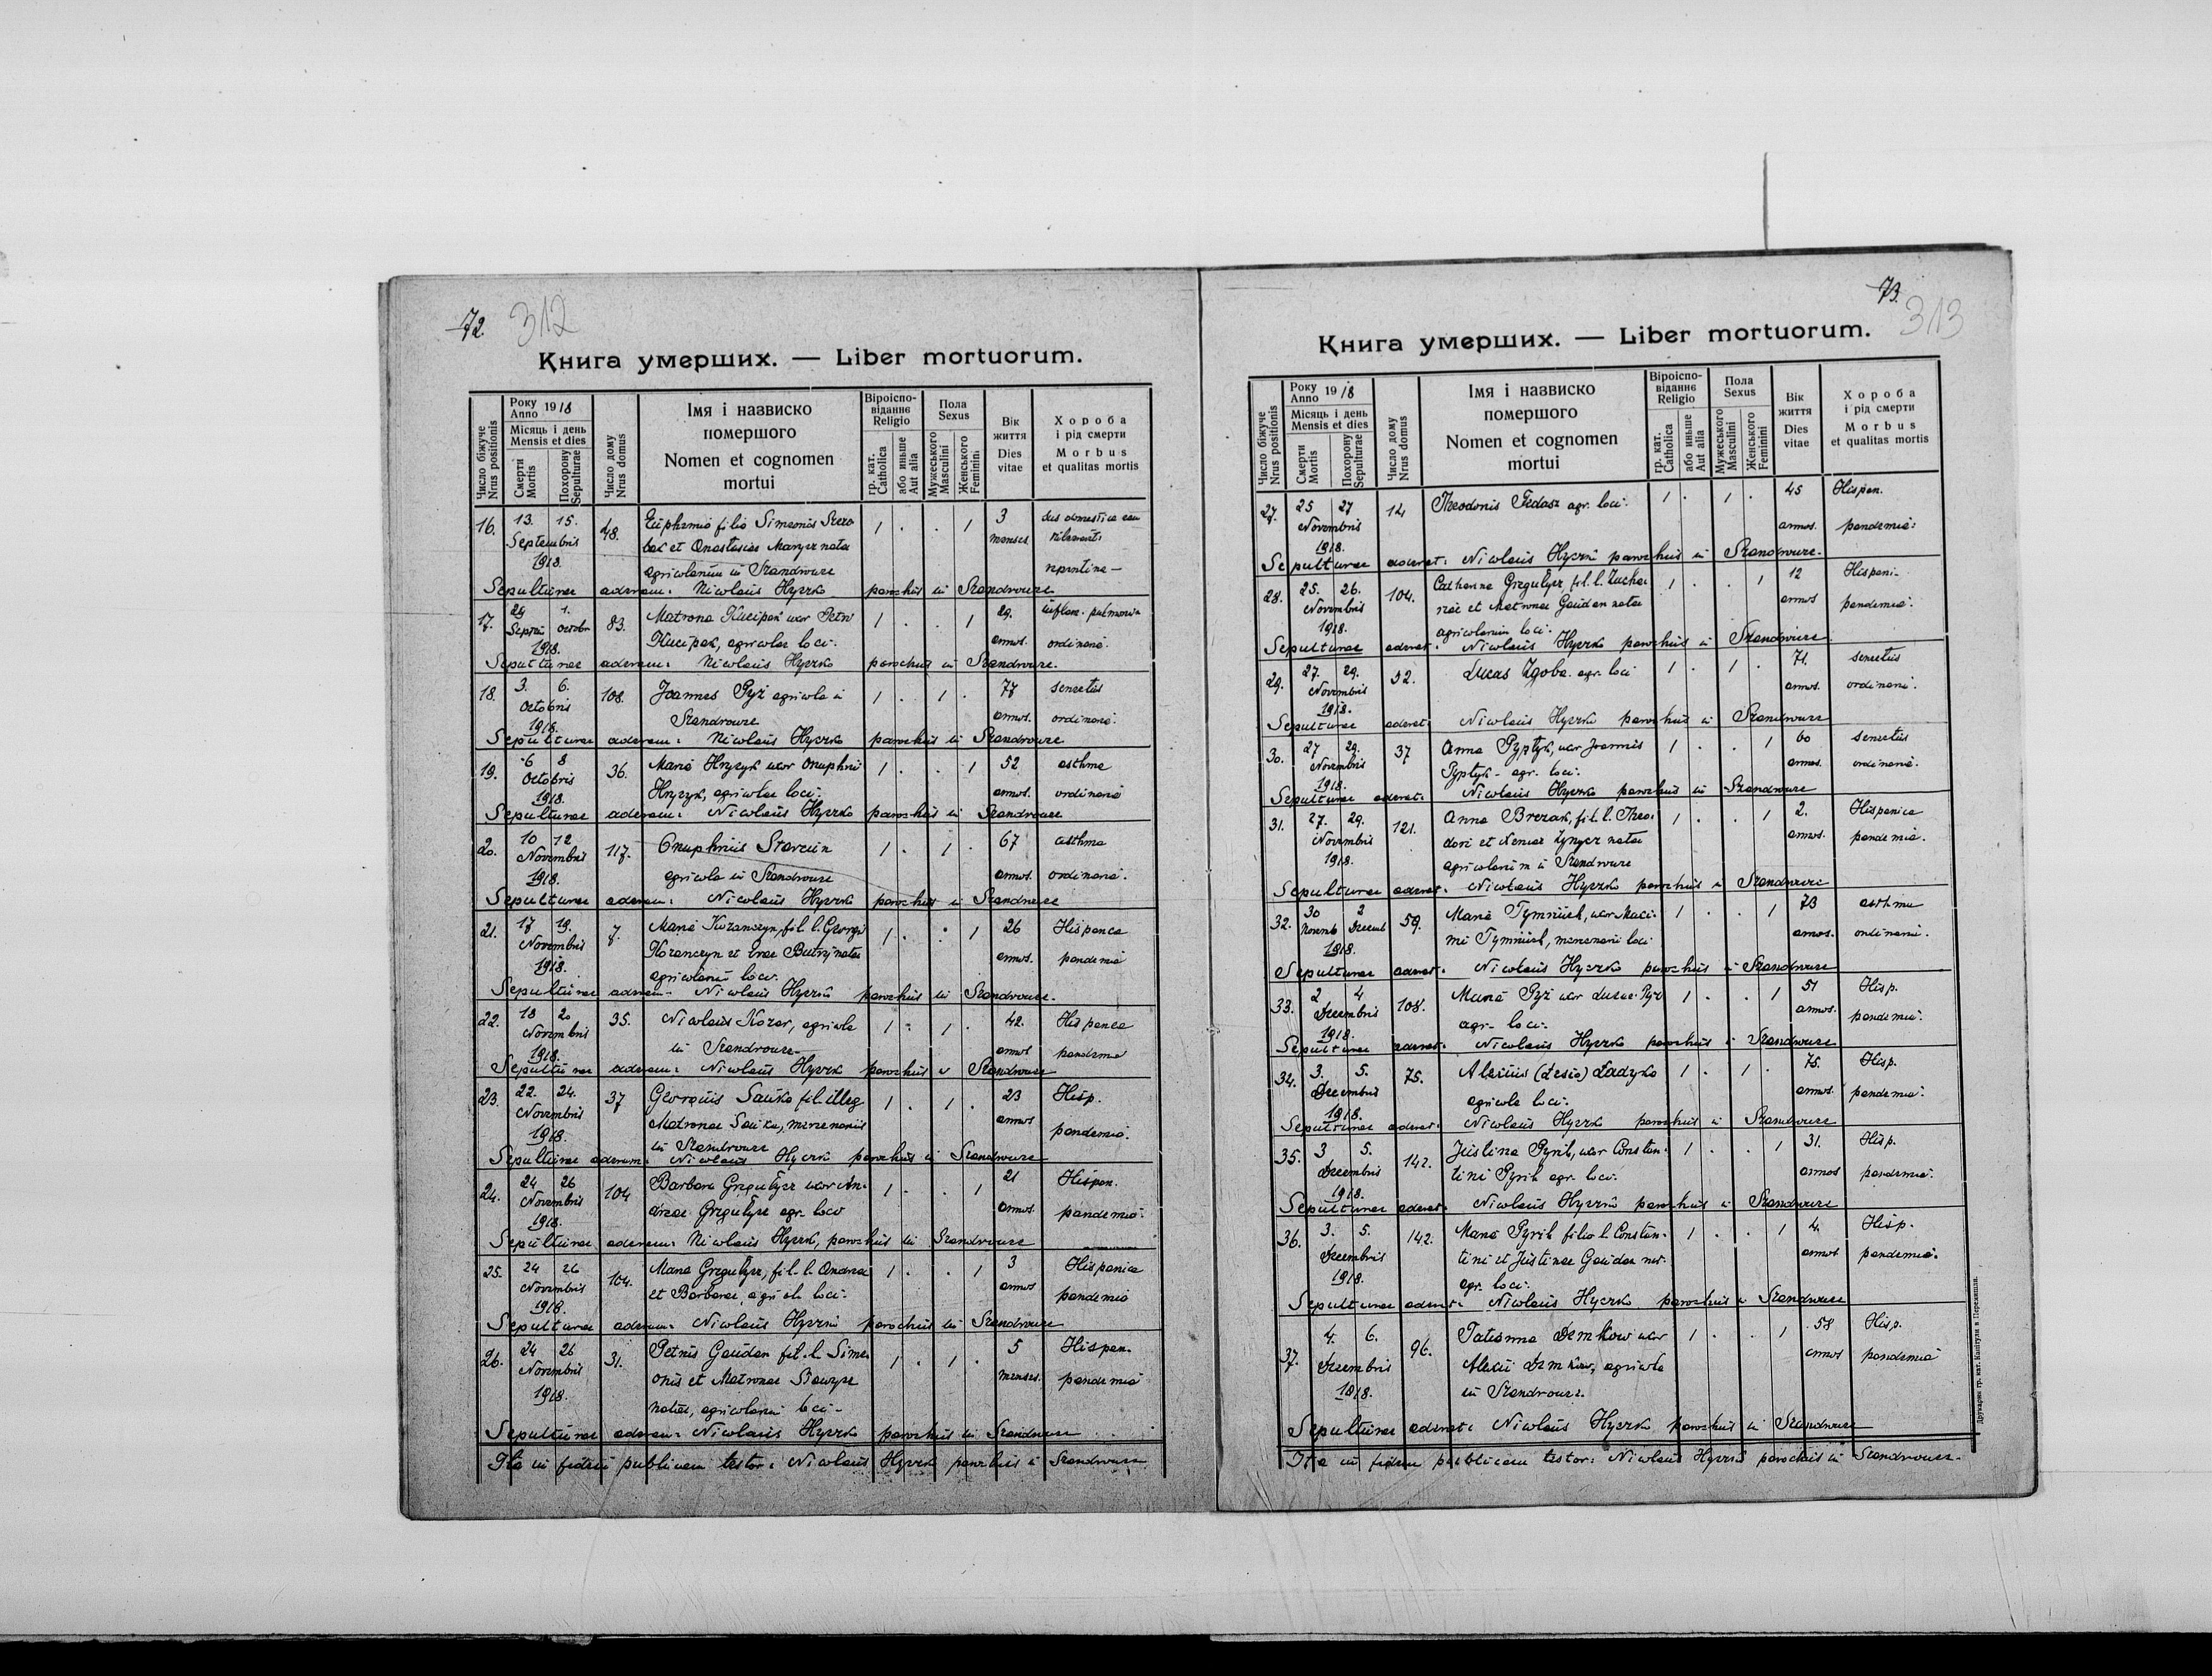 72. 312
Книга умерших. — Liber mortuorum.
Число біжуче Nrus positionis
Року Anno 1918
Місяць і день Mensis et dies
Смерти Mortis
Похорону Sepulturae
Число дому Nrus domus
Імя і назвиско помершого
Nomen et cognomen mortui
Віроісповіданнє Religio
гр. кат. Catholica
або иньше Aut alia
Пола Sexus
Мужеського Masculini
Женського Feminini
Вік життя Dies vitae
Хороба і рід смерти
Morbus et qualitas mortis
16. 13. 15. Septembris 1918. 48. Euphemia filia Simeonis
et Anastasiae nata
agricolarum in Szandrowec 1 . . 1 3 menses
Sepulturae aderam: Nicolaus Hyczko parochus in Szandrowec
17. 29 Septem 1. Octobr 1918. 83. Matrona Kucipak uxor Petri
Kucipak, agricolae loci. 1 . . 1 29. annos. inflam. pulmonum ordinaria.
Sepulturae aderam: Nicolaus Hyczko parochus in Szandrowec.
18. 3. 6. Octobris 1918. 108. Joannes Pyż agricola in
Szandrowec 1 . 1 . 77 annos. senectus ordinaria.
Sepulturae aderam: Nicolaus Hyczko parochus in Szandrowec
19. 6 8 Octobris 1918. 36. Maria Hryzyk uxor Onuphrii
Hryzyk, agricolae loci. 1 . . 1 52 annos. asthma ordinaria
Sepulturae aderam: Nicolaus Hyczko parochus in Szandrowec
20. 10 12 Novembris 1918. 117. Onuphrius
agricola in Szandrowec 1 . 1 . 67 annos. asthma ordinaria.
Sepulturae aderam: Nicolaus Hyczko parochus in Szandrowec
21. 17 19. Novembris 1918. 7. Maria Kozanczyn, fil. l. Georgii
Kozanczyn et Evae Butryj natae
agricolarum loci. 1 . . 1 26 annos. Hispanca pandemia
Sepulturae aderam. Nicolaus Hyczko parochus in Szandrowec.
22. 18 20 Novembris 1918. 35. Nicolaus Kozar, agricola
in Szandrowec 1 . 1 . 42. annos Hispanca pandemia
Sepulturae aderam: Nicolaus Hyczko parochus in Szandrowec
23. 22. 24. Novembris 1918. 37 Georgius Sauka fil. illeg
Matronae Sauka, mercenarii
in Szandrowec 1 . 1 . 23 annos Hisp. pandemia.
Sepulturae aderam: Nicolaus Hyczko parochus in Szandrowec
24. 24 26 Novembris 1918. 104 Barbara Gregulycz uxor An-
dreae Gregulycz agr. loco 1 . . 1 21 annos. Hispan. pandemia.
Sepulturae aderam: Nicolaus Hyczko, parochus in Szandrowec
25. 24 26 Novembris 1918. 104. Maria Gregulycz, fil. l. Andreae
et Barbarae, agricol. loci. 1 . . 1 3 annos Hispanica pandemia
Sepulturae aderam: Nicolaus Hyczko parochus in Szandrowec
26. 24 26 Novembris 1918. 31. Petrus Gaudan fil. l. Sime-
onis et Matronae
natae, agricolarum loci. 1 . 1 . 5 menses. Hispan. pandemia
Sepulturae aderam: Nicolaus Hyczko parochus in Szandrowec
Ita in fidem publicam testor: Nicolaus Hyczko parochus in Szandrowec
73. 313
Книга умерших. — Liber mortuorum.
Число біжуче Nrus positionis
Року Anno 1918
Місяць і день Mensis et dies
Смерти Mortis
Похорону Sepulturae
Число дому Nrus domus
Імя і назвиско помершого
Nomen et cognomen mortui
Віроісповіданнє Religio
гр. кат. Catholica
або иньше Aut alia
Пола Sexus
Мужеського Masculini
Женського Feminini
Вік життя Dies vitae
Хороба і рід смерти
Morbus et qualitas mortis
27. 25 27 Novembris 1918. 14 Theodoris Fedasz agr. loci. 1 . 1 . 45 annos. Hispan. pandemia.
Sepulturae aderat: Nicolaus Hyczko parochus in Szandrowec.
28. 25. 26. Novembris 1918. 104. Catharina Gregulycz fil. l. Zacha-
riae et Matronae Gaudan natae
agricolarum loci. 1 . . 1 12 annos Hispani- pandemia.
Sepulturae aderat: Nicolaus Hyczko parochus in Szandrowec
29. 27. 29. Novembris 1918. 32. Lucas Zgoba agr. loci 1 . 1 . 71. annos. senectus ordinaria.
Sepulturae aderat: Nicolaus Hyczko parochus in Szandrowec
30. 27 29. Novembris 1918. 37 Anna Pyptyk, uxor Joannis
Pyptyk - agr. loci. 1 . . 1 60 annos. senectus ordinaria.
Sepulturae aderat: Nicolaus Hyczko parochus in Szandrowec
31. 27. 29. Novembris 1918. 121. Anna Brezak, fil. l. Theo-
dori et Xeniae Zynycz natae
agricolarum in Szandrowec 1 . . 1 2. annos. Hispanica pandemia.
Sepulturae aderat: Nicolaus Hyczko parochus in Szandrowec
32. 30 Novemb 2 Decemb 1918. 59. Maria Tymniuch, uxor Maxi-
mi Tymniuch, mercenarii loci 1 . . 1 73 annos. asthma ordinaria.
Sepulturae aderat: Nicolaus Hyczko parochus in Szandrowec
33. 2 4 Decembris 1918. 108. Maria Pyż uxor Lucae Pyż
agr. loci. 1 . . 1 51 annos. Hisp. pandemia.
Sepulturae aderat: Nicolaus Hyczko parochus in Szandrowec
34. 3. 5. Decembris 1918. 75. Alexius (Lesio) Ladyka
agricola loci. 1 . 1 . 75. annos. Hisp. pandemia.
Sepulturae aderat: Nicolaus Hyczko parochus in Szandrowec
35. 3 5. Decembris 1918. 142. Justina Pyrih, uxor Constan-
tini Pyrih agr. loci. 1 . . 1 31. annos Hisp. pandemia.
Sepulturae aderat: Nicolaus Hyczko parochus in Szandrowec
36. 3. 5. Decembris 1918. 142. Maria Pyrih filia l. Constan-
tini et Justinae Gaudan nat.
agr. loci. 1 . . 1 4. annos Hisp. pandemia.
Sepulturae aderat: Nicolaus Hyczko parochus in Szandrowec
37. 4. 6. Decembris 1918. 96. Tatianna Demkow uxor
Alexii Demkow, agricola
in Szandrowec. 1 . . 1 58 annos Hisp. pandemia
Sepulturae aderat: Nicolaus Hyczko parochus in Szandrowec
Ita in fidem publicam testor: Nicolaus Hyczko parochus in Szandrowec.
Друкарня гр. кат. Капітули в Перемишли.